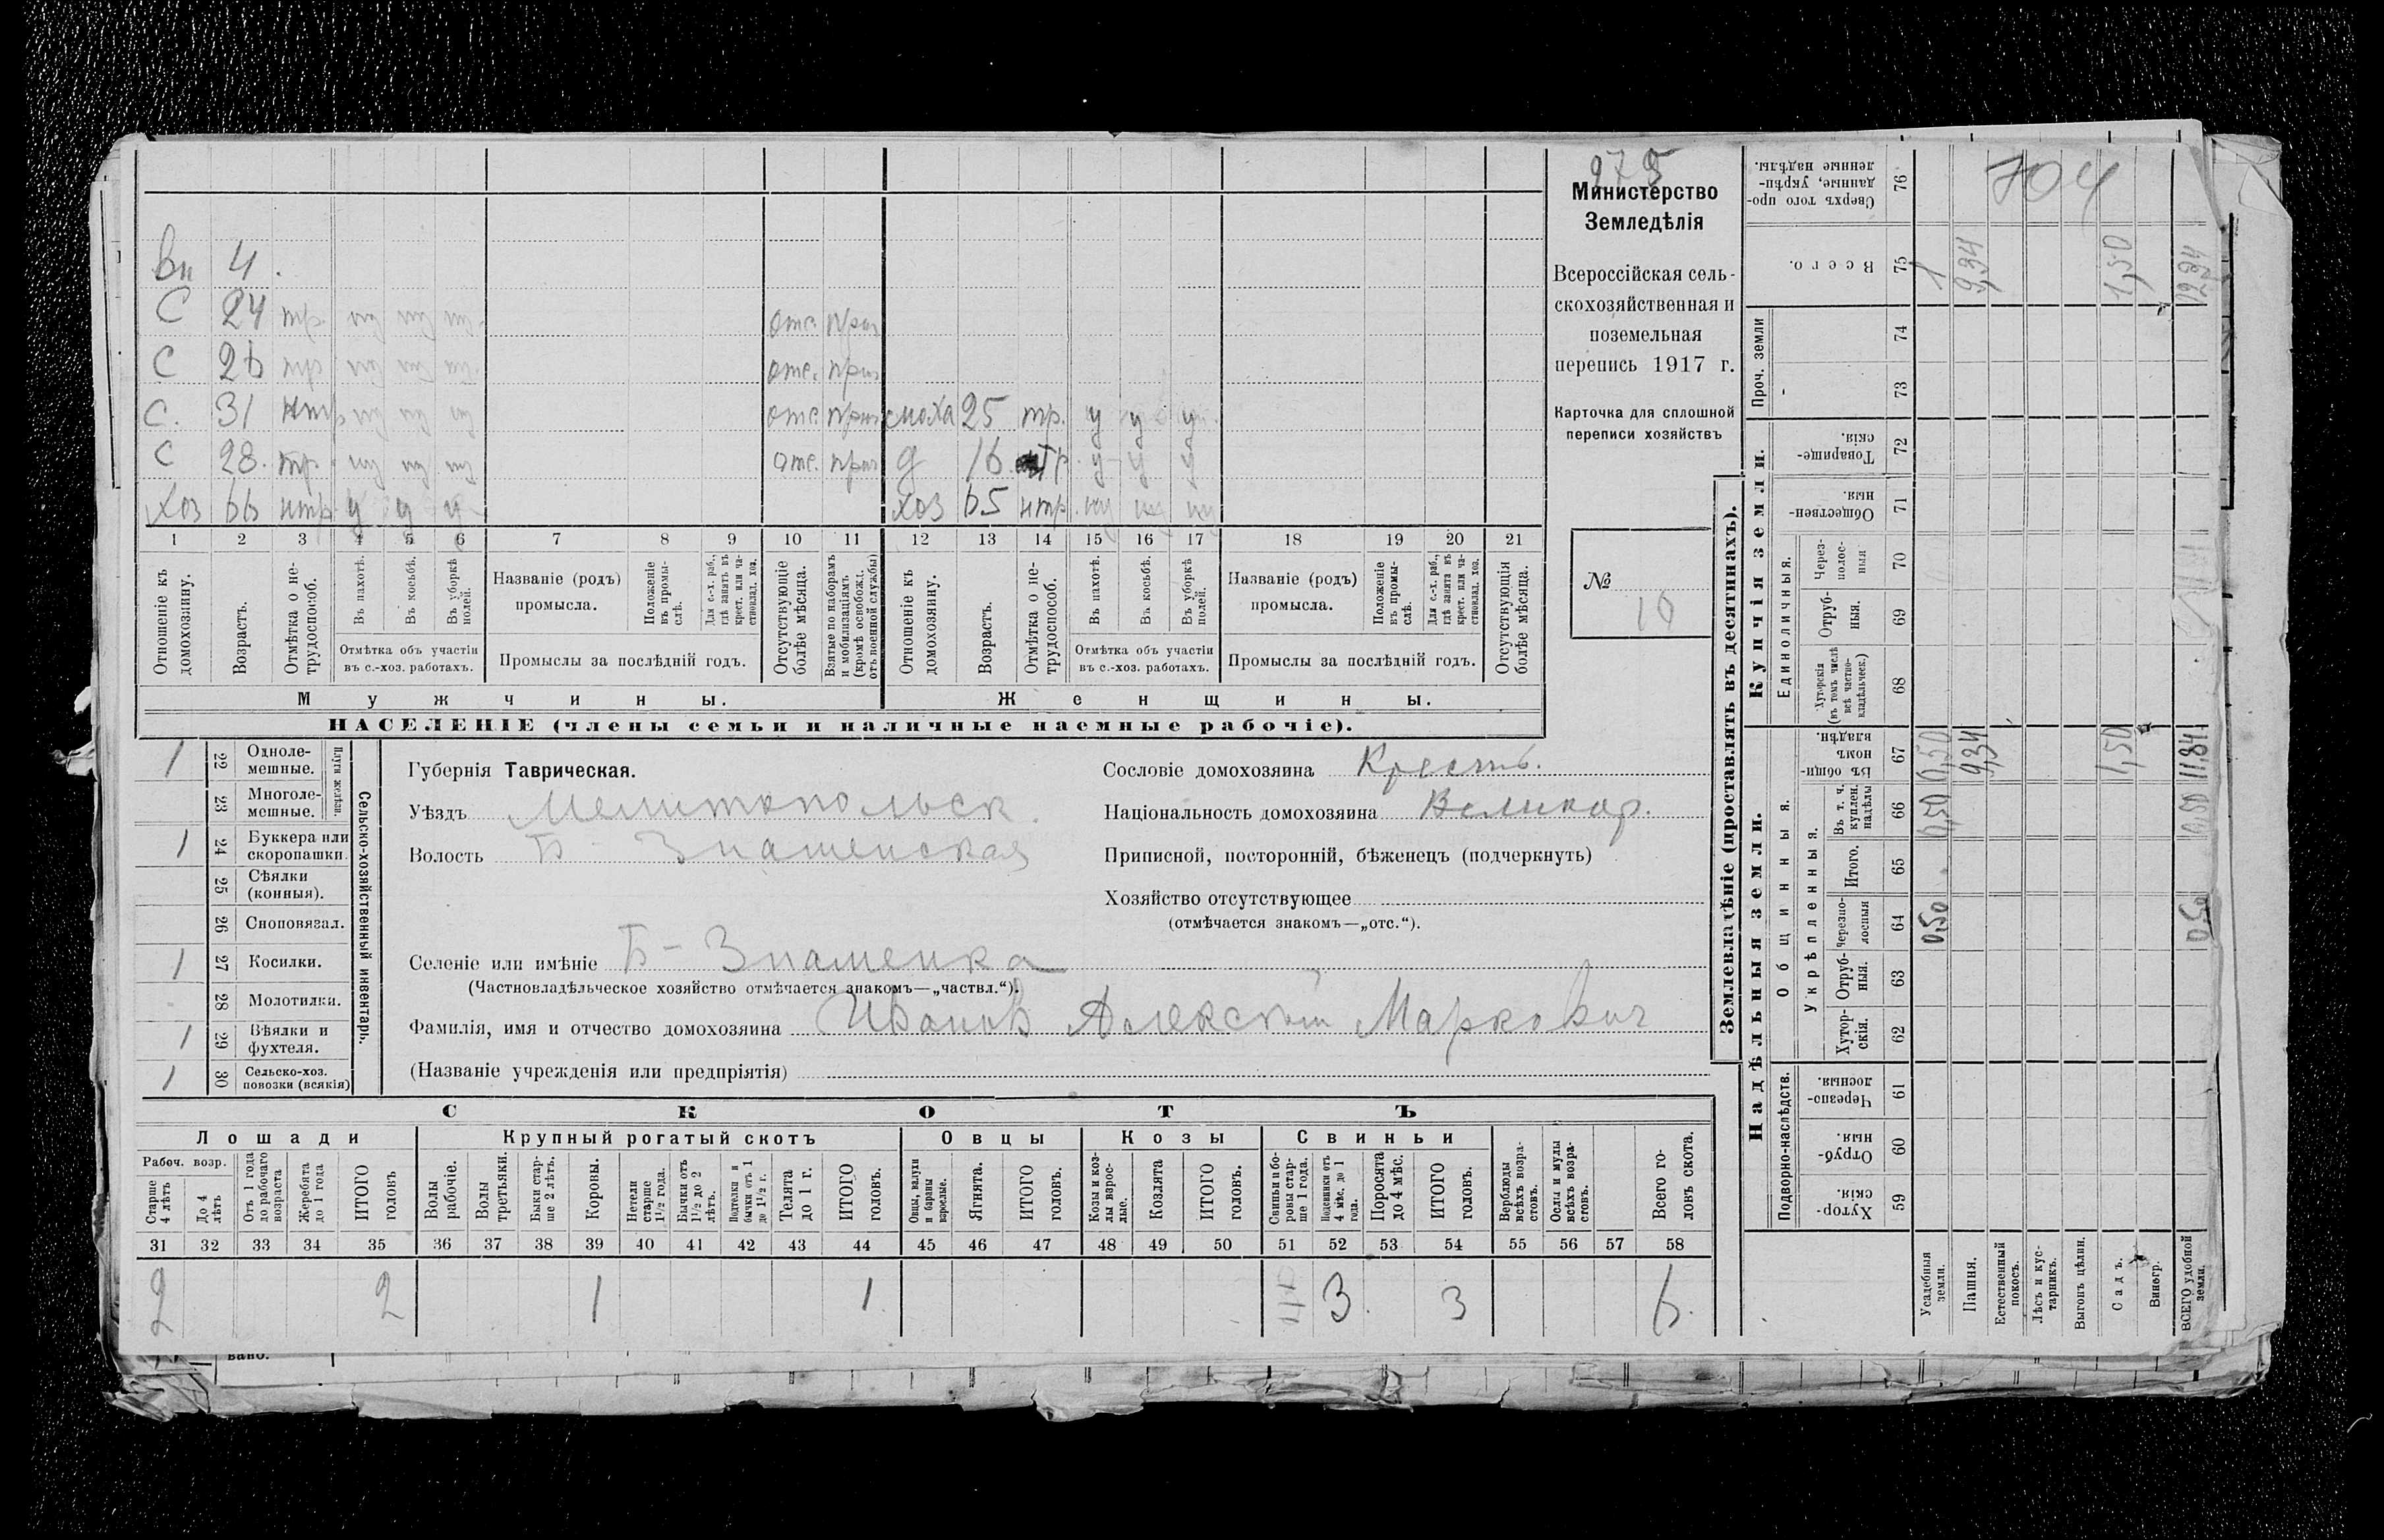 975
704
Министерство
Земледѣлія
Всероссійская сель-
скохозяйственная и
поземельная
перепись 1917 г.
Карточка для сплошной
переписи хозяйствъ
№ 10
вн 4.
С 24 тр. ну ну ну отс. приз
С 26 тр ну ну ну отс. приз
С. 31 нтр ну ну ну отс. приз сноха 25 тр. у у у
С 28. тр. ну ну ну отс. приз д 16 тр. у у у
хоз 66 нтр у у у хоз 65 нтр. ну ну ну
1 2 3 4 5 6 7 8 9 10 11 12 13 14 15 16 17 18 19 20 21
Отношеніе къ домохозяину.
Возрастъ.
Отмѣтка о не-трудоспособ.
Въ пахотѣ.
Въ косьбѣ.
Въ уборкѣ полей.
Отмѣтка объ участіи въ с.-хоз. работахъ.
Названіе (родъ) промысла.
Положеніе въ промы-слѣ.
Для с.-х. раб., гдѣ занятъ въ крест. или ча-стновлад. хоз.
Промыслы за послѣдній годъ.
Отсутствующіе болѣе мѣсяца.
Взятые по наборамъ и мобилизаціямъ (кромѣ освобожд. отъ военной службы)
Отношеніе къ домохозяину.
Возрастъ.
Отмѣтка о не-трудоспособ.
Въ пахотѣ.
Въ косьбѣ.
Въ уборкѣ полей.
Отмѣтка объ участіи въ с.-хоз. работахъ.
Названіе (родъ) промысла.
Положеніе въ промы-слѣ.
Для с.-х. раб., гдѣ занята въ крест. или ча-стновлад. хоз.
Промыслы за послѣдній годъ.
Отсутствующія болѣе мѣсяца.
Мужчины. Женщины.
НАСЕЛЕНІЕ (члены семьи и наличные наемные рабочіе).
Сельско-хозяйственный инвентарь.
Плуги желѣзн.
1 22 Одноле-мешные.
23 Многоле-мешные.
1 24 Буккера или скоропашки.
25 Сѣялки (конныя).
26 Сноповязал.
1 27 Косилки.
28 Молотилки.
1 29 Вѣялки и фухтеля.
1 30 Сельско-хоз. повозки (всякія)
Губернія Таврическая.
Уѣздъ Мелитопольск.
Волость Б-Знаменская
Селеніе или имѣніе Б-Знаменка
(Частновладѣльческое хозяйство отмѣчается знакомъ—„частвл.“).
Фамилія, имя и отчество домохозяина Ивановъ Алексѣй Марковичъ
(Названіе учрежденія или предпріятія)
Сословіе домохозяина Крестъ.
Національность домохозяина Великор.
Приписной, посторонній, бѣженецъ (подчеркнуть)
Хозяйство отсутствующее
(отмѣчается знакомъ—„отс.“).
СКОТЪ
Лошади Крупный рогатый скотъ Овцы Козы Свиньи
Рабоч. возр.
Старше 4 лѣтъ
До 4 лѣтъ
Отъ 1 года до рабочаго возраста
Жеребята до 1 года
ИТОГО головъ
Волы рабочіе.
Волы третьяки.
Быки стар-ше 2 лѣтъ.
Коровы.
Нетели старше 1 1/2 года.
Бычки отъ 1 1/2 до 2 лѣтъ.
Подтелки и бычки отъ 1 до 1 1/2 г.
Телята до 1 г.
ИТОГО головъ.
Овцы, валухи и бараны взрослые.
Ягнята.
ИТОГО головъ.
Козы и коз-лы взрос-лые.
Козлята
ИТОГО головъ.
Свиньи и бо-ровы стар-ше 1 года.
Подсвинки отъ 4 мѣс. до 1 года.
Поросята до 4 мѣс.
ИТОГО головъ.
Верблюды всѣхъ возра-стовъ.
Ослы и мулы всѣхъ возра-стовъ.
Всего го-ловъ скота.
31 32 33 34 35 36 37 38 39 40 41 42 43 44 45 46 47 48 49 50 51 52 53 54 55 56 57 58
2 2 1 1 3 3 6
вано.
Землевладѣніе (проставлять въ десятинахъ).
Надѣльныя земли. Купчія земли. Проч. земли
Подворно-наслѣдств.
Общинныя.
Укрѣпленныя.
Единоличныя.
Сверхъ того про-данные, укрѣп-ленные надѣлы. 76
Всего. 75 1 9,34 1,50 12,34
74
73
Товарище-скія. 72
Обществен-ныя. 71
Через-полос-ныя 70
Отруб-ныя. 69
Хуторскія (въ томъ числѣ всѣ частно-владѣльческ.) 68
Въ общи-номъ владѣн. 67 0,50 9,34 1,50 11,84
Въ т. ч. куплен. надѣлы 66 0,50 0,50
Итого. 65
Черезпо-лосныя 64 0,50 0,50
Отруб-ныя. 63
Хутор-скія. 62
Черезпо-лосныя. 61
Отруб-ныя. 60
Хутор-скія. 59
Усадебныя земли.
Пашня.
Естественный покосъ.
Лѣсъ и кус-тарникъ.
Выгонъ цѣлин.
Садъ.
Виногр.
ВСЕГО удобной земли.